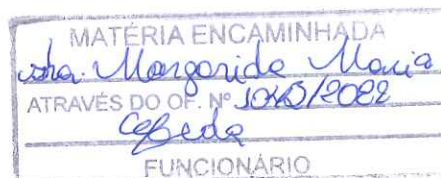 MATÉRIA ENCAMINHADA
Margarida Maria
ATRAVÉS DO OF. Nº /2022
FUNCIONÁRIO